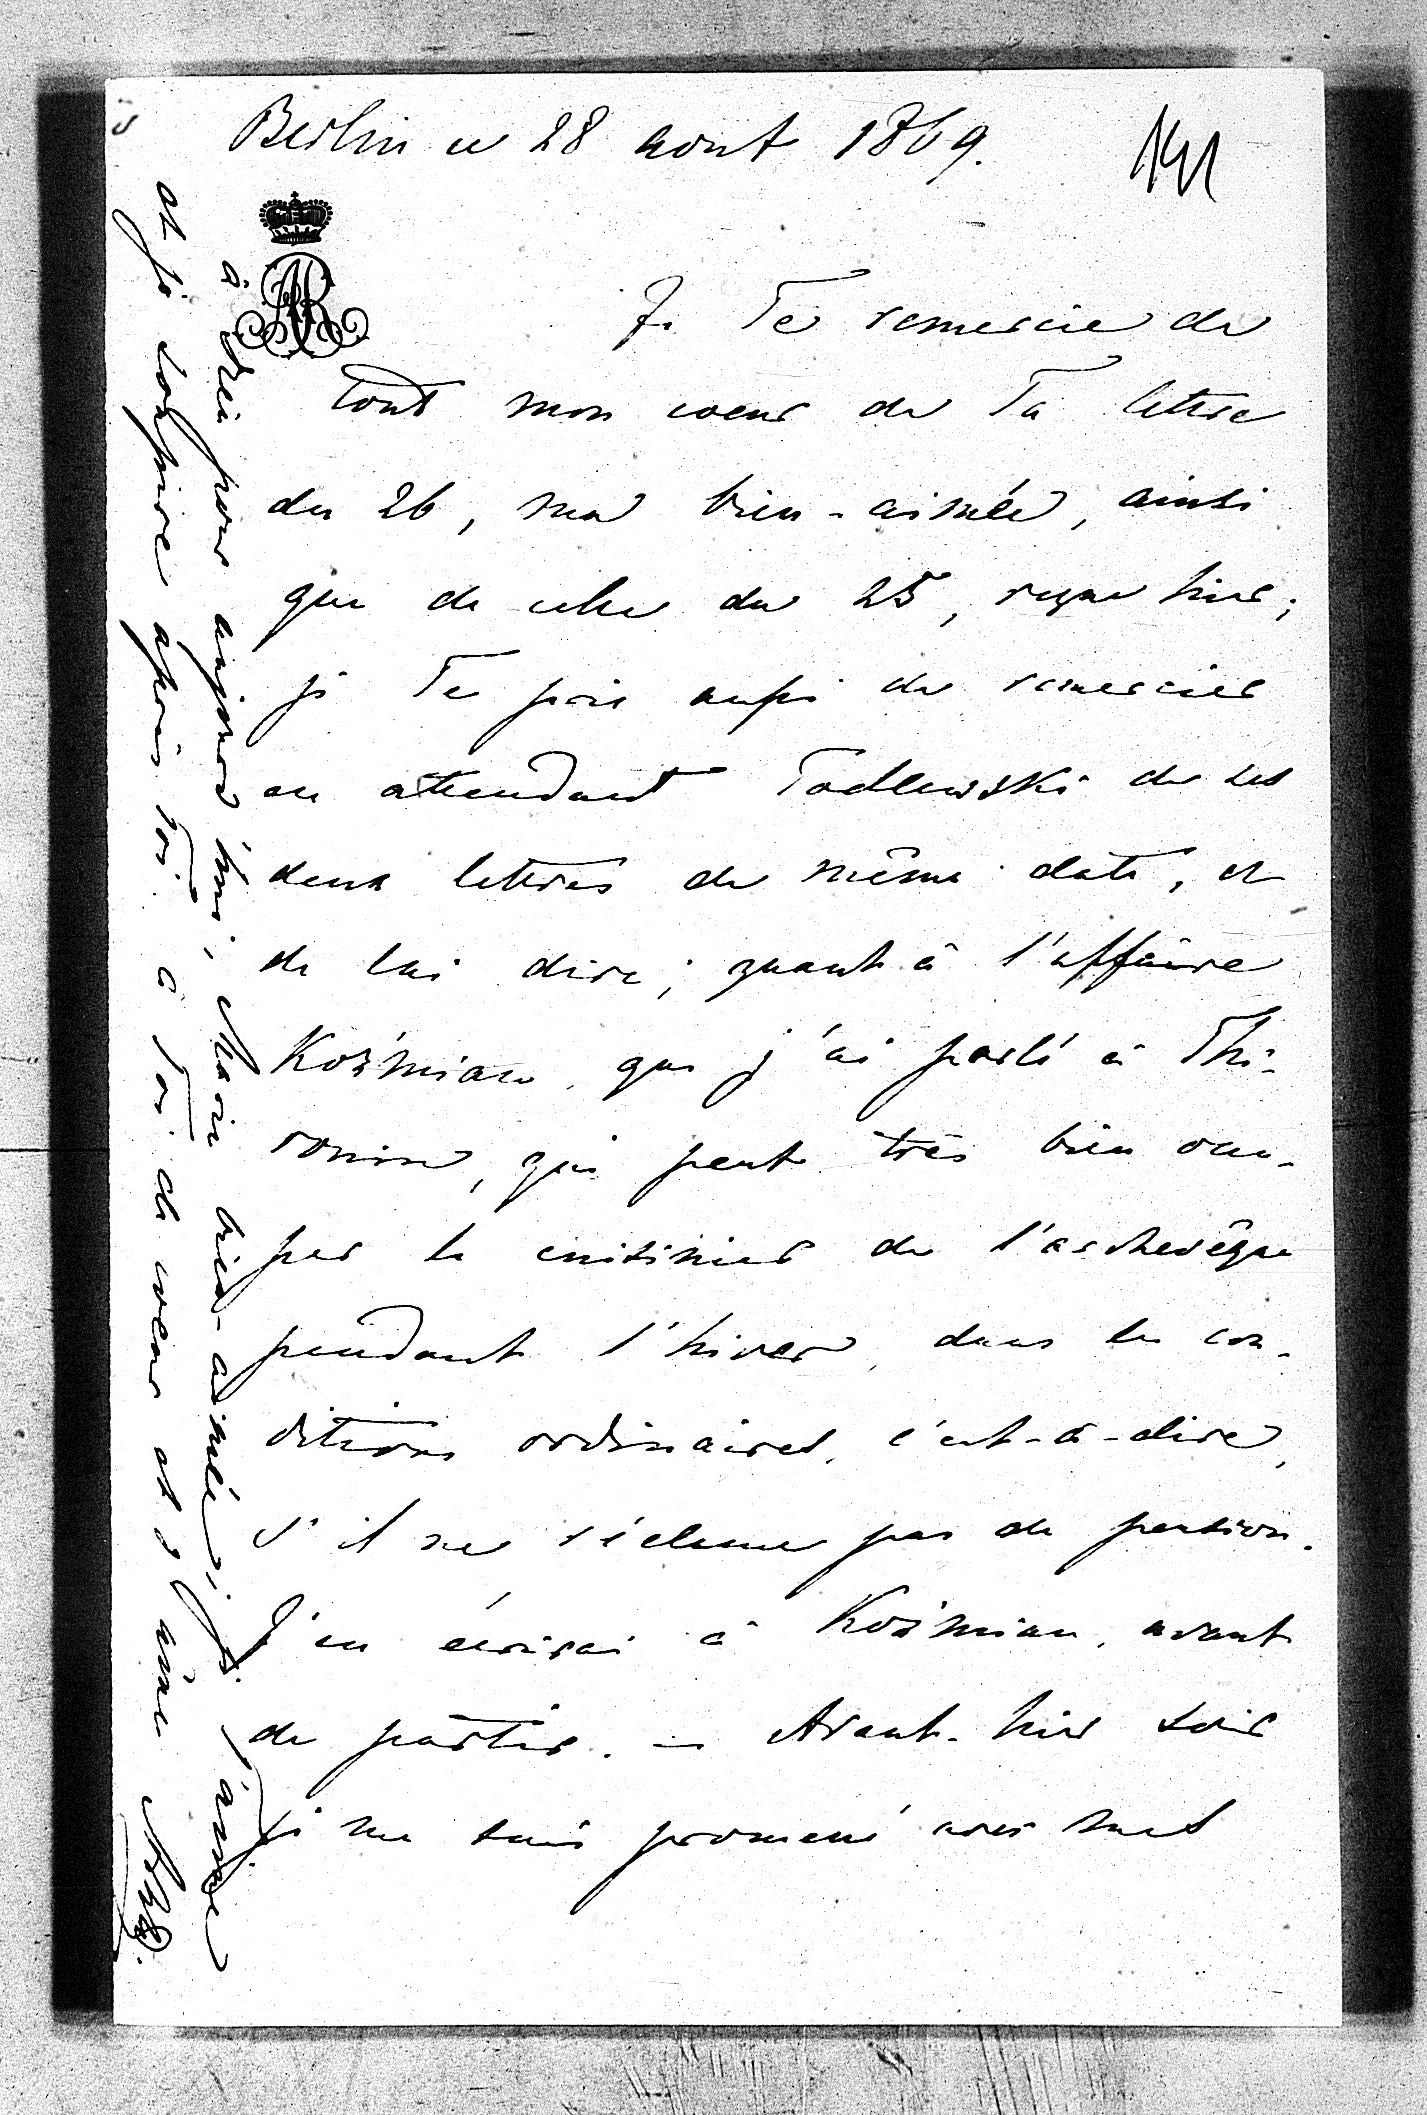 Berlin ce 28 aout 1869.
141
Je Te remercie de
tout mon coeur de Ta lettre
du 26, ma bien-aimée, ainsi
que de celle du 25, reçue hier;
je Te prie aussi de remercier
en attendant Podlewski de ses
deux lettres de même date, et
de lui dire, quant à l'affaire
Koźmian, que j'ai parlé à Thi-
ronin, qui peut très bien occu-
per le cuisinier de l'archevêque
pendant l'hiver, dans les con-
ditions ordinaires, c'est-à-dire,
s'il ne réclame pas de pension.
J'en écrirai à Koźmian, avant
de partir. — Avant-hier soir
je me suis promené avec mes
à Dieu pour aujourd'hui, Marie bien-aimée; je t'aime
et je soupire après toi. à Toi de coeur et d'âme